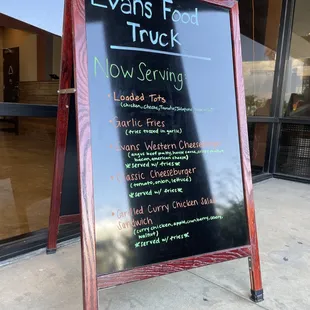 Evans Food
Truck
Now Serving
• Loaded Tots
(chicken, cheese,
• Garlic Fries
(fries tossed in garlic)
Evans Western Cheeseburger
(angus beef patty,
bacon, american cheese)
*served w/ fries*
Classic Cheeseburger
(tomato, onion, lettuce)
*served w/ fries*
Grilled Curry Chicken Salad
Sandwich
(curry chicken, apple, cranberry, celery,
walnut)
*served w/ fries*